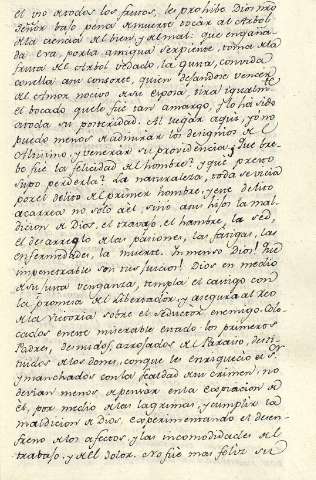 el uso de todos los frutos, les prohibe Dios nro
Señor bajo pena de muerte tocar al Arbol
de la ciencia del bien, y del mal: que engaña-
da Eva por la antigua Serpiente, toma de la
fruta del Arbol vedado, la gusta, convida
con ella a su consorte, quien dejandose vencer
del Amor nocivo de su esposa, tira igualmte
el bocado que le fue tan amargo, y lo há sido
a toda su posteridad. Al llegar aqui, yo no
puedo menos de admirar los designios del
Altisimo, y venerar su providencia. Que bre-
be fue la felicidad del hombre! y que presto
supo perderla! La naturaleza toda se vicia
por el delito del primer hombre, y ese delito
acarrea no solo a el, sino a sus hijos la mal-
dicion de Dios, el travajo, el hambre, la sed,
el desarreglo de las pasiones, las fatigas, las
enfermedades, la muerte. Inmenso Dios! Que
impenetrables son tus juicios! Dios en medio
de su una venganza, templa el castigo con
la promesa del libertador, y asegura al reo
de la victoria sobre el seductor enemigo. Colo-
cados en este miserable estado los primeros
Padres, desnudos, arrojados del Paraiso, desti-
tuidos de los dones, con que los enriqueció el Sor
y manchados con la fealdad de su crimen, no
devian menos de pensar en la expiacion de
el, por medio de las lagrimas, y cumplir la
maldicion de Dios, experimentando el desen-
freno de los afectos, y las incomodidades del
trabajo, y del dolor. No fue mas feliz su